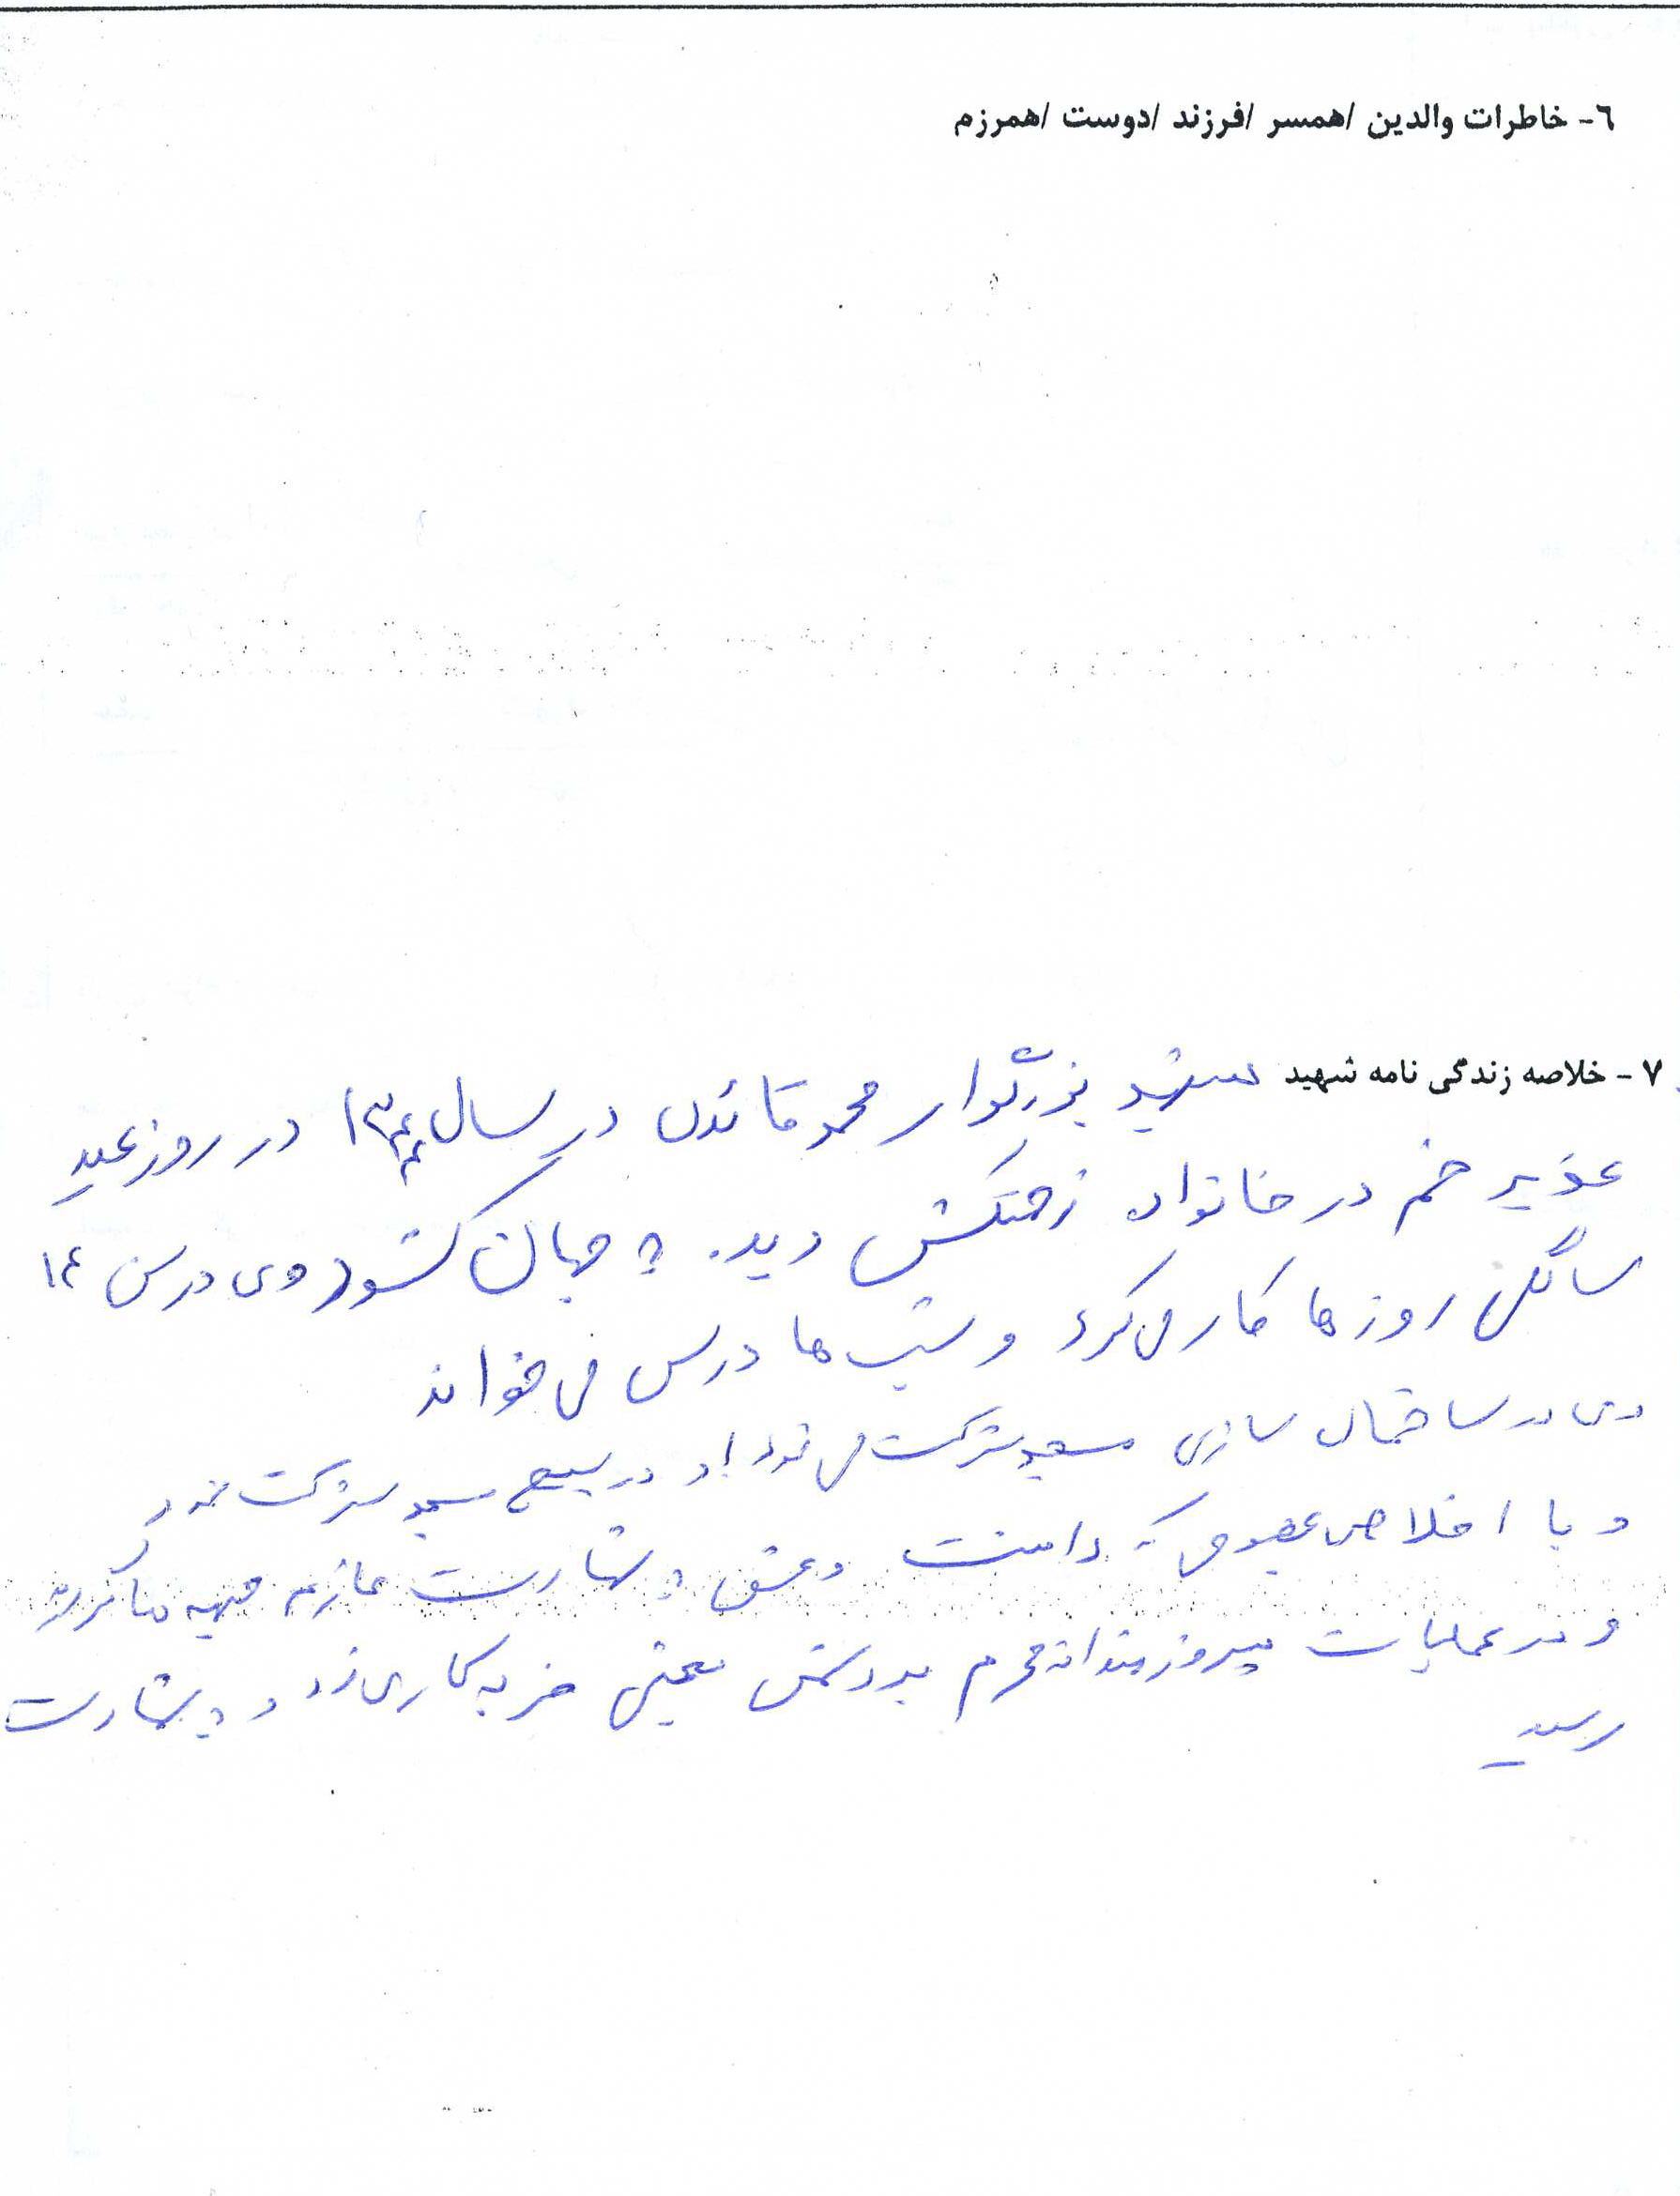 ٦- خاطرات والدین /همسر /فرزند /دوست /همرزم
٧- خلاصه زندگی نامه شهید شهید بزرگوار محمد قائدی در سال در روز عید
غدیر خم در خانواده زحمتکش دیده به جهان گشود وی در سن ١٤
سالگی روزها کار می کرد و شب ها درس می خواند
وی در ساختمان سازی مسجد شرکت می نمود او در بسیج مسجد شرکت نمود
و با اخلاص که داشت و عشق به شهادت عازم جبهه ها گردید
و در عملیات پیروزمندانه محرم بر دشمن بعثی ضربه کاری زد و به شهادت
رسید